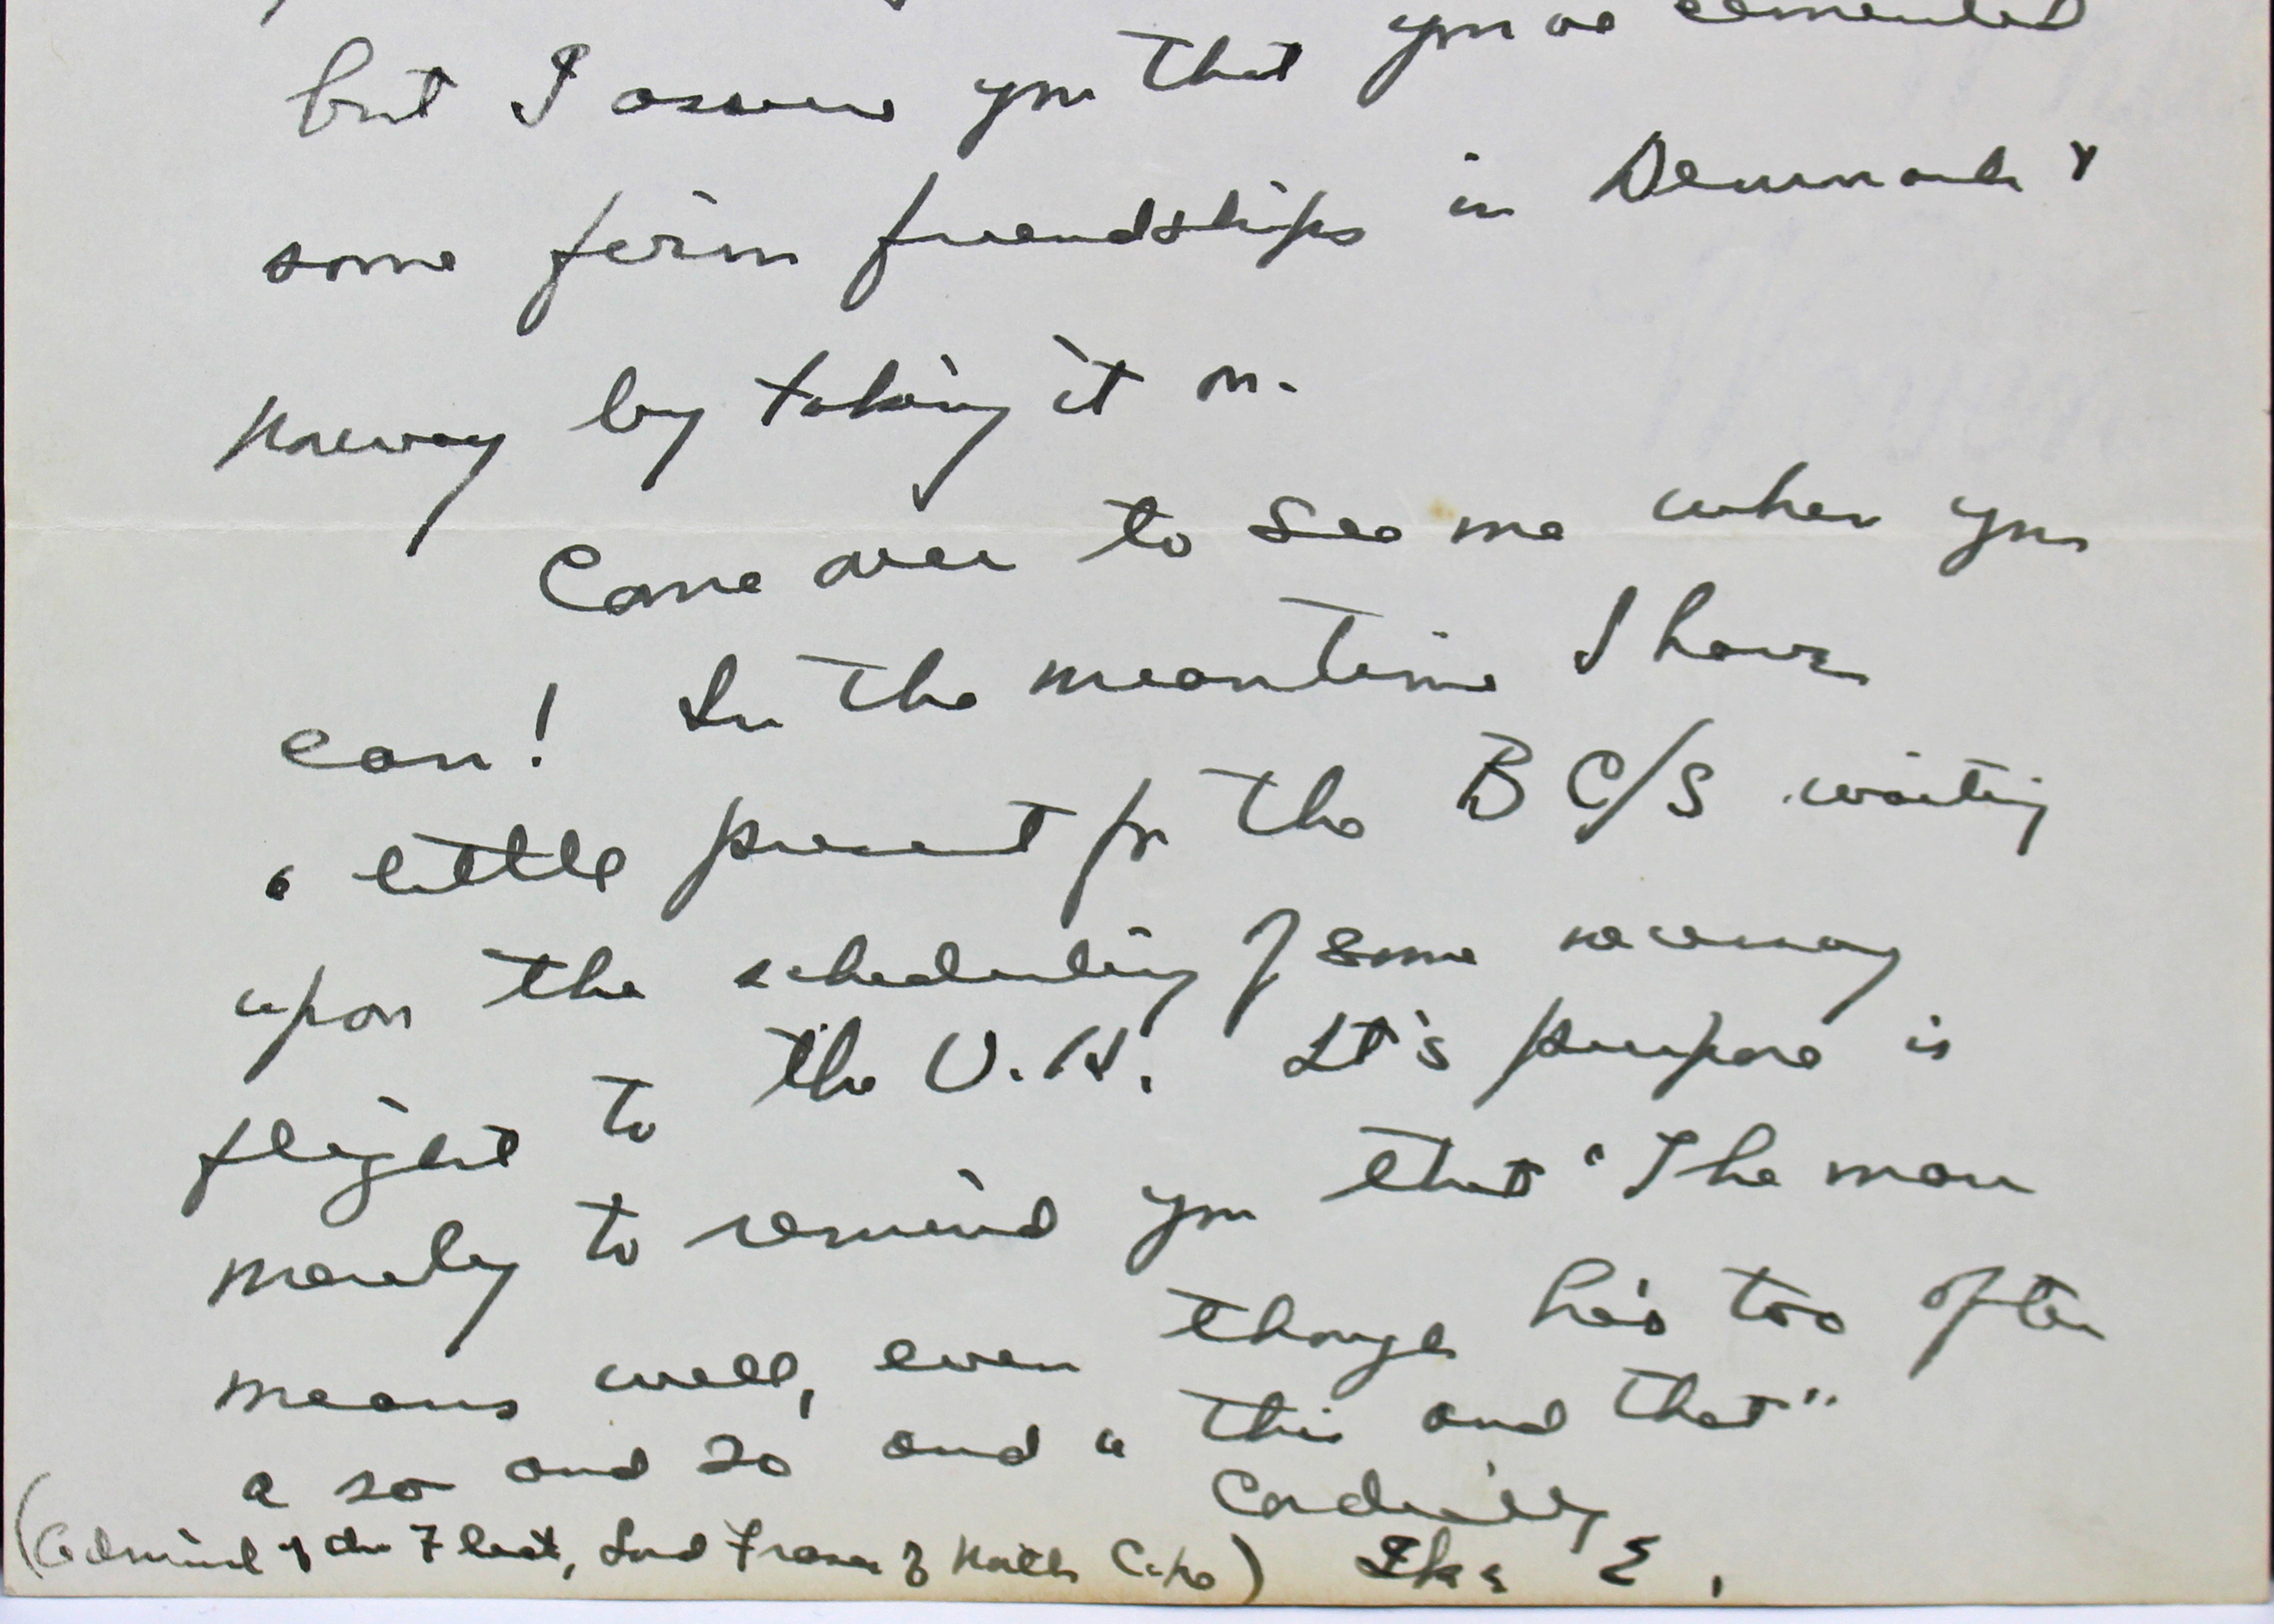 you've cemented
but I assure you that
some firm friendships in Denmark &
Norway by taking it on.
Come over to see me when you
can! In the meantime I have
a little present for the B C/S waiting
upon the scheduling of some necessary
flight to the U.K. It's purpose is
merely to remind you that "The man
means well, even though he's too often
a so and so and a "this and that"
Cordially,
(Admiral of the Fleet, Lord Fraser of North Cape) Ike E.